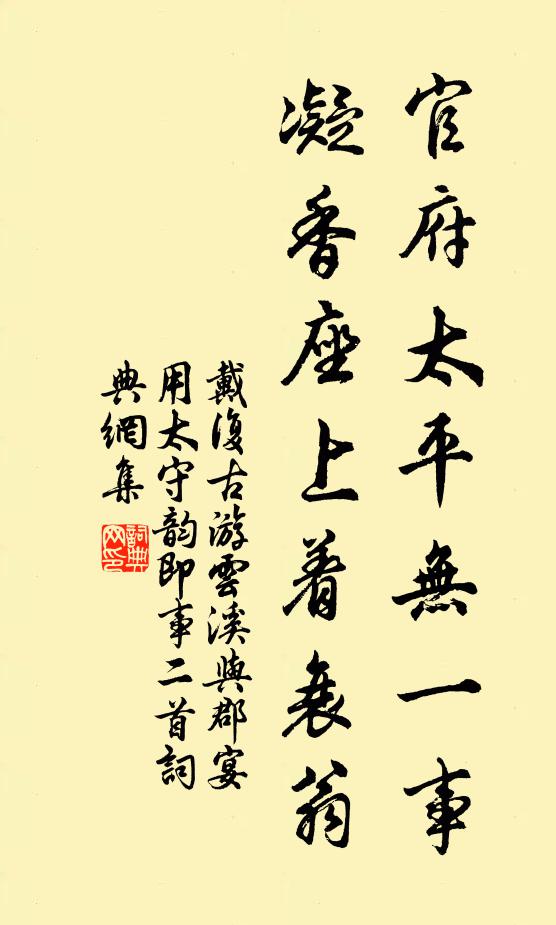 官府太平無一事
凝香座上着衰翁
戴復古游雲溪與郡宴
用太守韵即事二首詞
典網集
詞典
网印